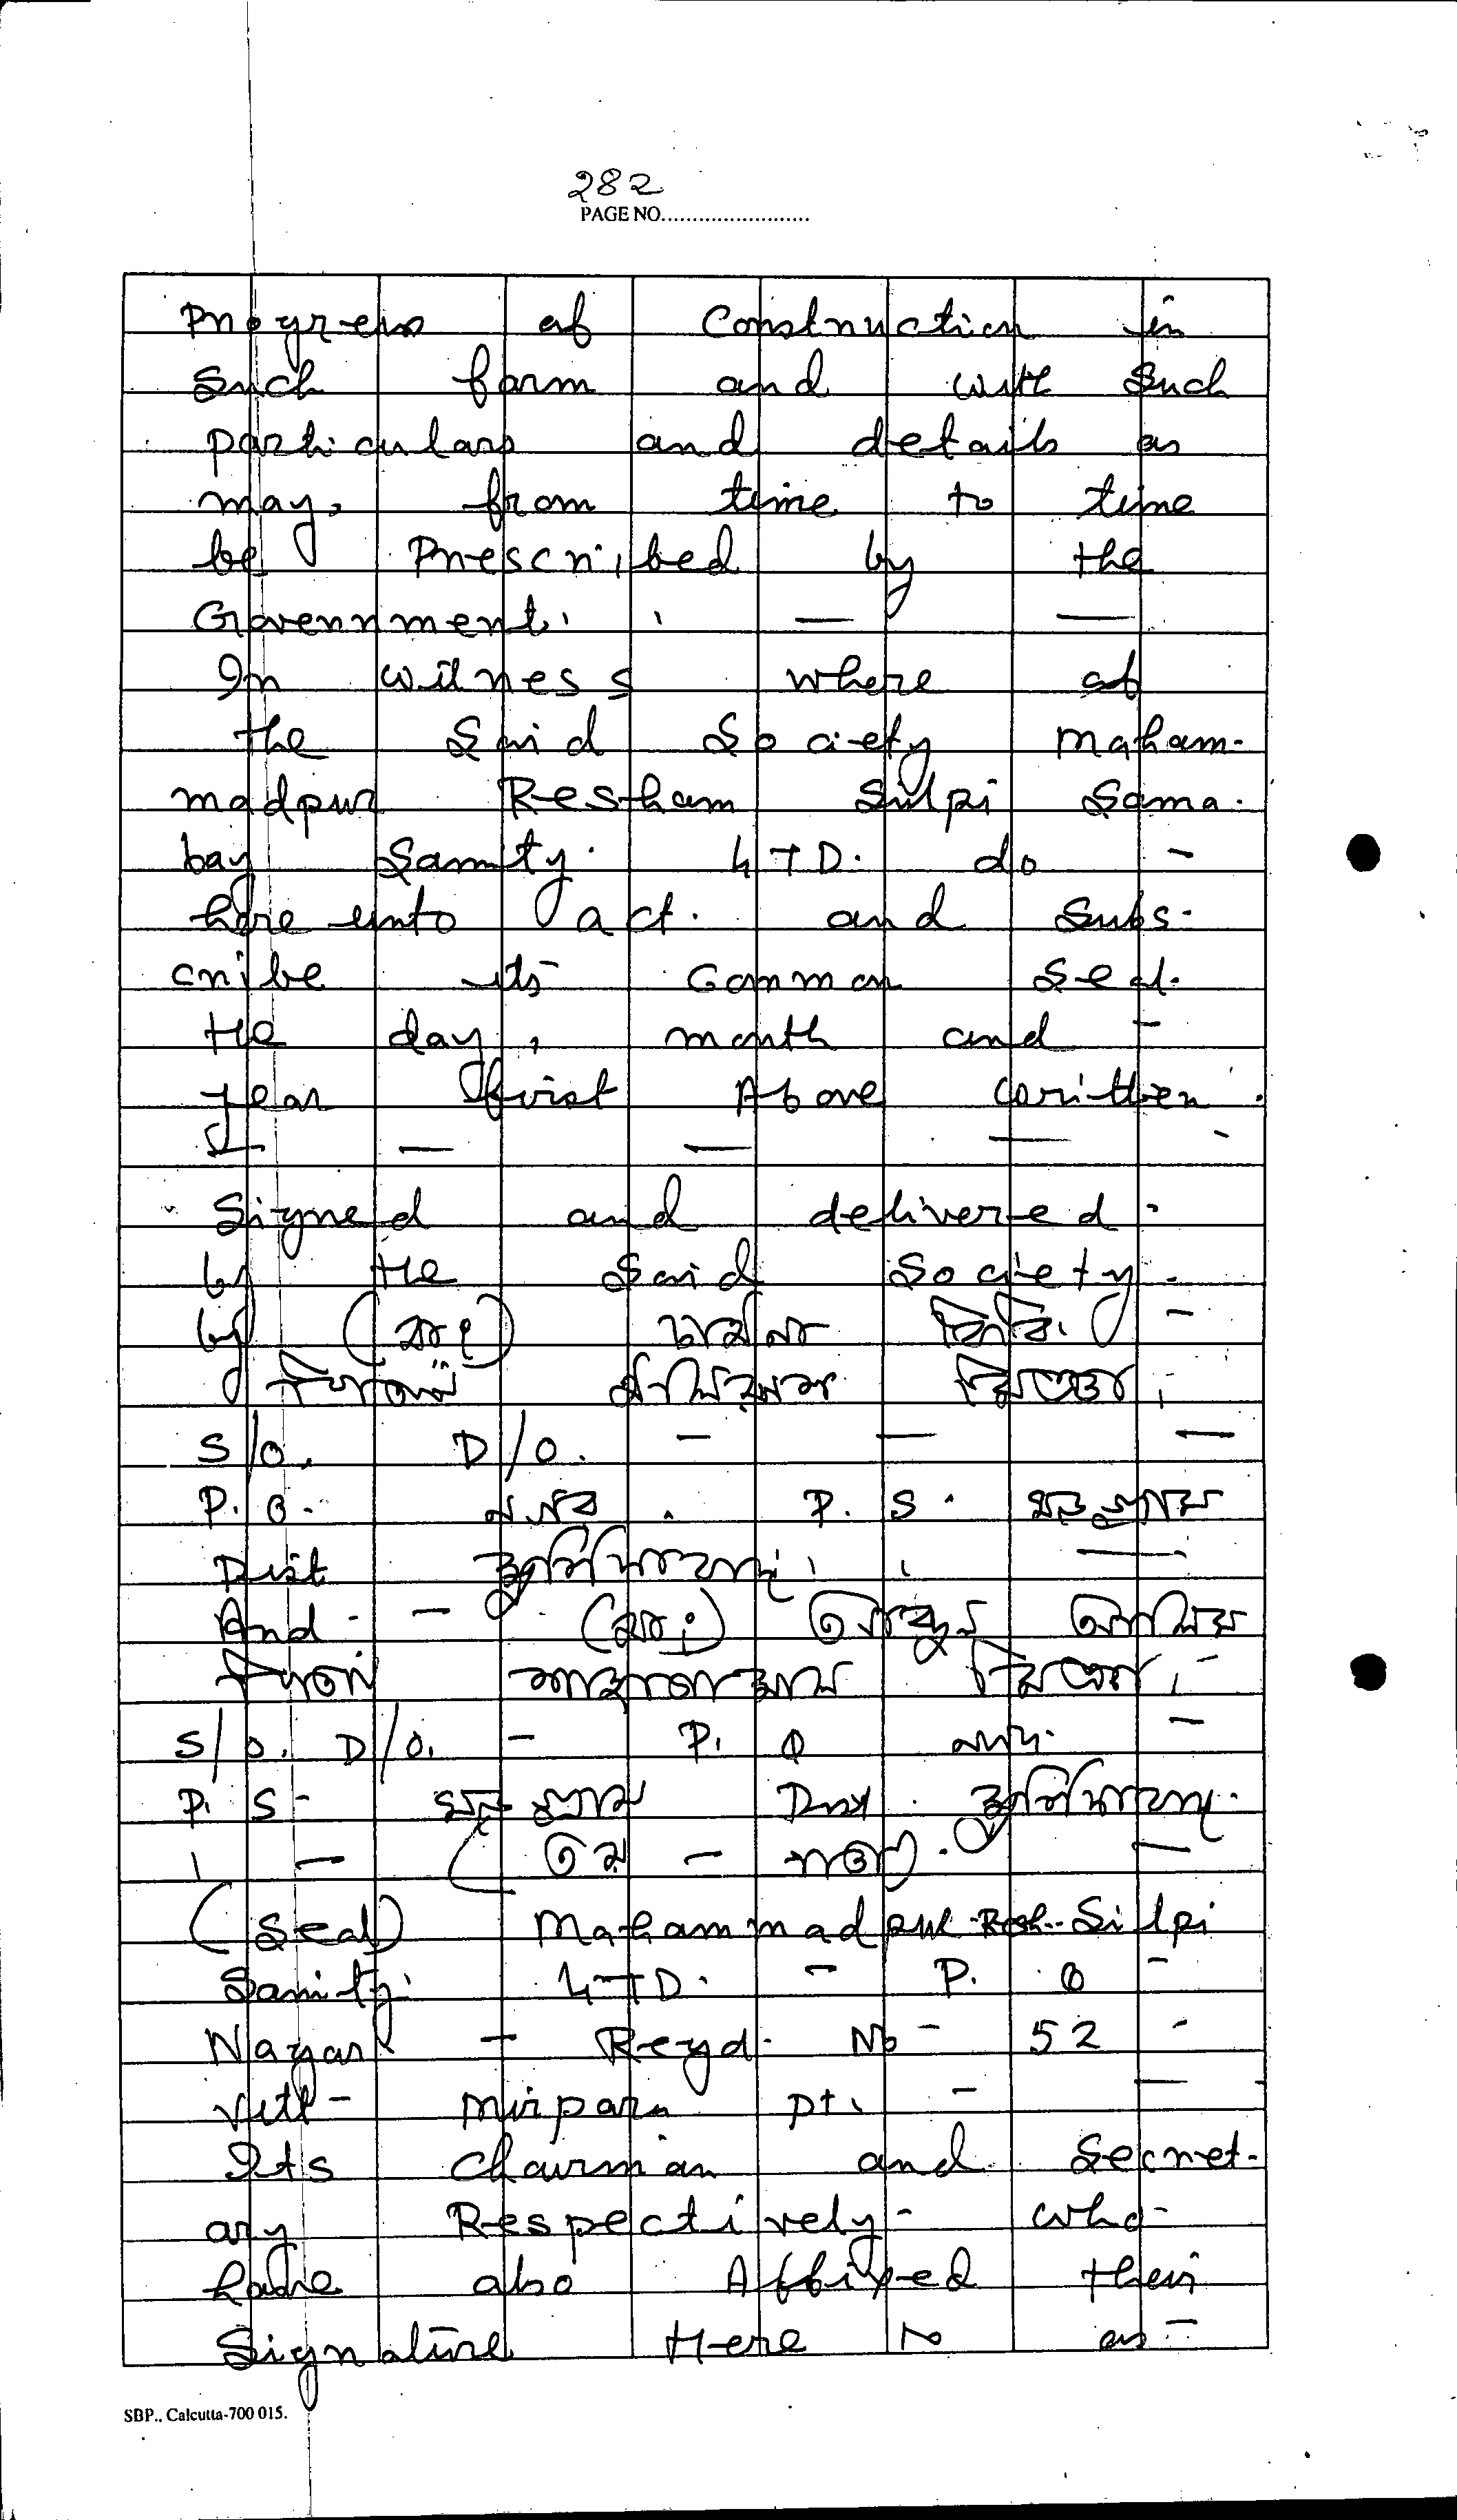 282
PAGE NO........................
Progress of Construction in
Such form and with Such
particulars and details as
may, from time to time
be Prescribed by the
Government. — —
In witness where of
the Said Society Maham-
madpur Resham Silpi Sama-
bay Samity. LTD. do -
here unto act. and Subs-
cribe its Common Seal.
the day, month and -
year first Above written.
— — — — -
Signed and delivered -
by the Said Society -
by (স্বাঃ)
S/O. D/O. - — —
P.O. নগর. P.S. খড়গ্রাম
Dist মুর্শিদাবাদ। —
And - — (স্বাঃ)
S/O. D/O. - P.O নগর -
P.S - খড়গ্রাম Dist মুর্শিদাবাদ.
(Seal) Mahammadpur Resh-Silpi
Samity. LTD. - P.O -
Nagar - Regd. No - 52 -
Vill - Mirpara pt. - —
Its Chairman and Secret-
ary Respectively - who -
have also Affixed their
Signature Here to as -
SBP., Calcutta-700 015.